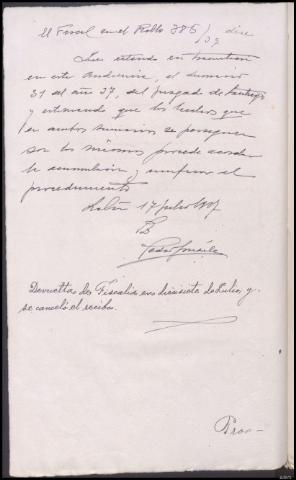 El Fiscal en el Rollo 385/37 dice
Que estando en tramitación
en esta Audiencia, el sumario
31 del año 37, del Juzgado de
y estimando que los hechos que
en ambos sumarios se persiguen
son los mismos procede acordar
la acumulación y unificar el
procedimiento
17 julio 1937
Devuelta de Fiscalía en diecisiete de Julio, y
se canceló el recibo.
Prov-